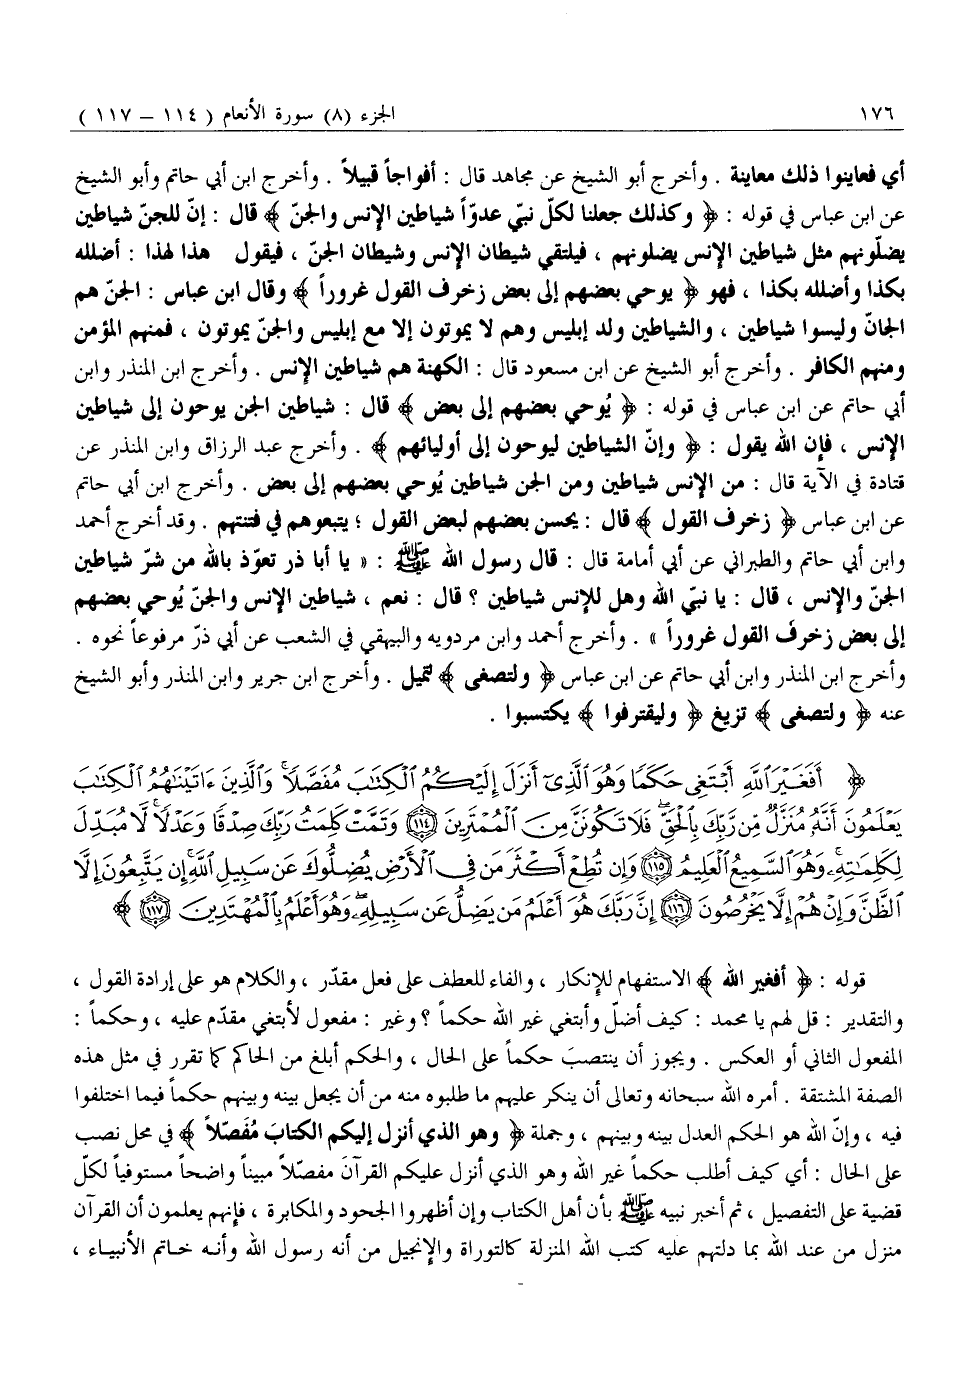 ١٧٦
الجزء (٨) سورة الأنعام ( ١١٤ – ١١٧ )
أي فعاينوا ذلك معاينة . وأخرج أبو الشيخ عن مجاهد قال : أفواجاً قبيلاً . وأخرج ابن أبي حاتم وأبو الشيخ
عن ابن عباس في قوله : ﴿ وكذلك جعلنا لكلّ نبيّ عدوّاً شياطين الإنس والجنّ ﴾ قال : إنّ للجنّ شياطين
يضلّونهم مثل شياطين الإنس يضلونهم ، فيلتقي شيطان الإنس وشيطان الجنّ ، فيقول هذا لهذا : أضلله
بكذا وأضلله بكذا ، فهو ﴿ يوحي بعضهم إلى بعض زخرف القول غروراً ﴾ وقال ابن عباس : الجنّ هم
الجانّ وليسوا شياطين ، والشياطين ولد إبليس وهم لا يموتون إلا مع إبليس والجنّ يموتون ، فمنهم المؤمن
ومنهم الكافر . وأخرج أبو الشيخ عن ابن مسعود قال : الكهنة هم شياطين الإنس . وأخرج ابن المنذر وابن
أبي حاتم عن ابن عباس في قوله : ﴿ يُوحي بعضهم إلى بعض ﴾ قال : شياطين الجن يوحون إلى شياطين
الإنس ، فإن الله يقول : ﴿ وإنّ الشياطين ليوحون إلى أوليائهم ﴾ . وأخرج عبد الرزاق وابن المنذر عن
قتادة في الآية قال : من الإنس شياطين ومن الجن شياطين يُوحي بعضهم إلى بعض . وأخرج ابن أبي حاتم
عن ابن عباس ﴿ زخرف القول ﴾ قال : يحسن بعضهم لبعض القول ؛ يتبعوهم في فتنتهم . وقد أخرج أحمد
وابن أبي حاتم والطبراني عن أبي أمامة قال : قال رسول الله ﷺ : « يا أبا ذر تعوّذ بالله من شرّ شياطين
الجنّ والإنس ، قال : يا نبيّ الله وهل للإنس شياطين ؟ قال : نعم ، شياطين الإنس والجنّ يُوحي بعضهم
إلى بعض زخرفَ القول غروراً » . وأخرج أحمد وابن مردويه والبيهقي في الشعب عن أبي ذرّ مرفوعاً نحوه .
وأخرج ابن المنذر وابن أبي حاتم عن ابن عباس ﴿ ولتصغى ﴾ لتميل . وأخرج ابن جرير وابن المنذر وأبو الشيخ
عنه ﴿ ولتصغى ﴾ تزيغ ﴿ وليقترفوا ﴾ يكتسبوا .
﴿ أَفَغَيْرَ ٱللَّهِ أَبْتَغِى حَكَمًا وَهُوَ ٱلَّذِىٓ أَنزَلَ إِلَيْكُمُ ٱلْكِتَٰبَ مُفَصَّلًا ۚ وَٱلَّذِينَ ءَاتَيْنَٰهُمُ ٱلْكِتَٰبَ
يَعْلَمُونَ أَنَّهُۥ مُنَزَّلٌ مِّن رَّبِّكَ بِٱلْحَقِّ ۖ فَلَا تَكُونَنَّ مِنَ ٱلْمُمْتَرِينَ ﴿١١٤﴾ وَتَمَّتْ كَلِمَتُ رَبِّكَ صِدْقًا وَعَدْلًا ۚ لَّا مُبَدِّلَ
لِكَلِمَٰتِهِۦ ۚ وَهُوَ ٱلسَّمِيعُ ٱلْعَلِيمُ ﴿١١٥﴾ وَإِن تُطِعْ أَكْثَرَ مَن فِى ٱلْأَرْضِ يُضِلُّوكَ عَن سَبِيلِ ٱللَّهِ ۚ إِن يَتَّبِعُونَ إِلَّا
ٱلظَّنَّ وَإِنْ هُمْ إِلَّا يَخْرُصُونَ ﴿١١٦﴾ إِنَّ رَبَّكَ هُوَ أَعْلَمُ مَن يَضِلُّ عَن سَبِيلِهِۦ ۖ وَهُوَ أَعْلَمُ بِٱلْمُهْتَدِينَ ﴿١١٧﴾ ﴾
قوله : ﴿ أفغير الله ﴾ الاستفهام للإنكار ، والفاء للعطف على فعل مقدّر ، والكلام هو على إرادة القول ،
والتقدير : قل لهم يا محمد : كيف أضلّ وأبتغي غير الله حكماً ؟ وغير : مفعول لأبتغي مقدّم عليه ، وحكماً :
المفعول الثاني أو العكس . ويجوز أن ينتصبَ حكماً على الحال ، والحكم أبلغ من الحاكم كما تقرر في مثل هذه
الصفة المشتقة . أمره الله سبحانه وتعالى أن ينكر عليهم ما طلبوه منه من أن يجعل بينه وبينهم حكماً فيما اختلفوا
فيه ، وإنّ الله هو الحكم العدل بينه وبينهم ، وجملة ﴿ وهو الذي أنزل إليكم الكتابَ مُفَصّلاً ﴾ في محل نصب
على الحال : أي كيف أطلب حكماً غير الله وهو الذي أنزل عليكم القرآنَ مفصّلاً مبيناً واضحاً مستوفياً لكلّ
قضية على التفصيل ، ثم أخبر نبيه ﷺ بأن أهل الكتاب وإن أظهروا الجحود والمكابرة ، فإنهم يعلمون أن القرآن
منزل من عند الله بما دلتهم عليه كتب الله المنزلة كالتوراة والإنجيل من أنه رسول الله وأنه خاتم الأنبياء ،